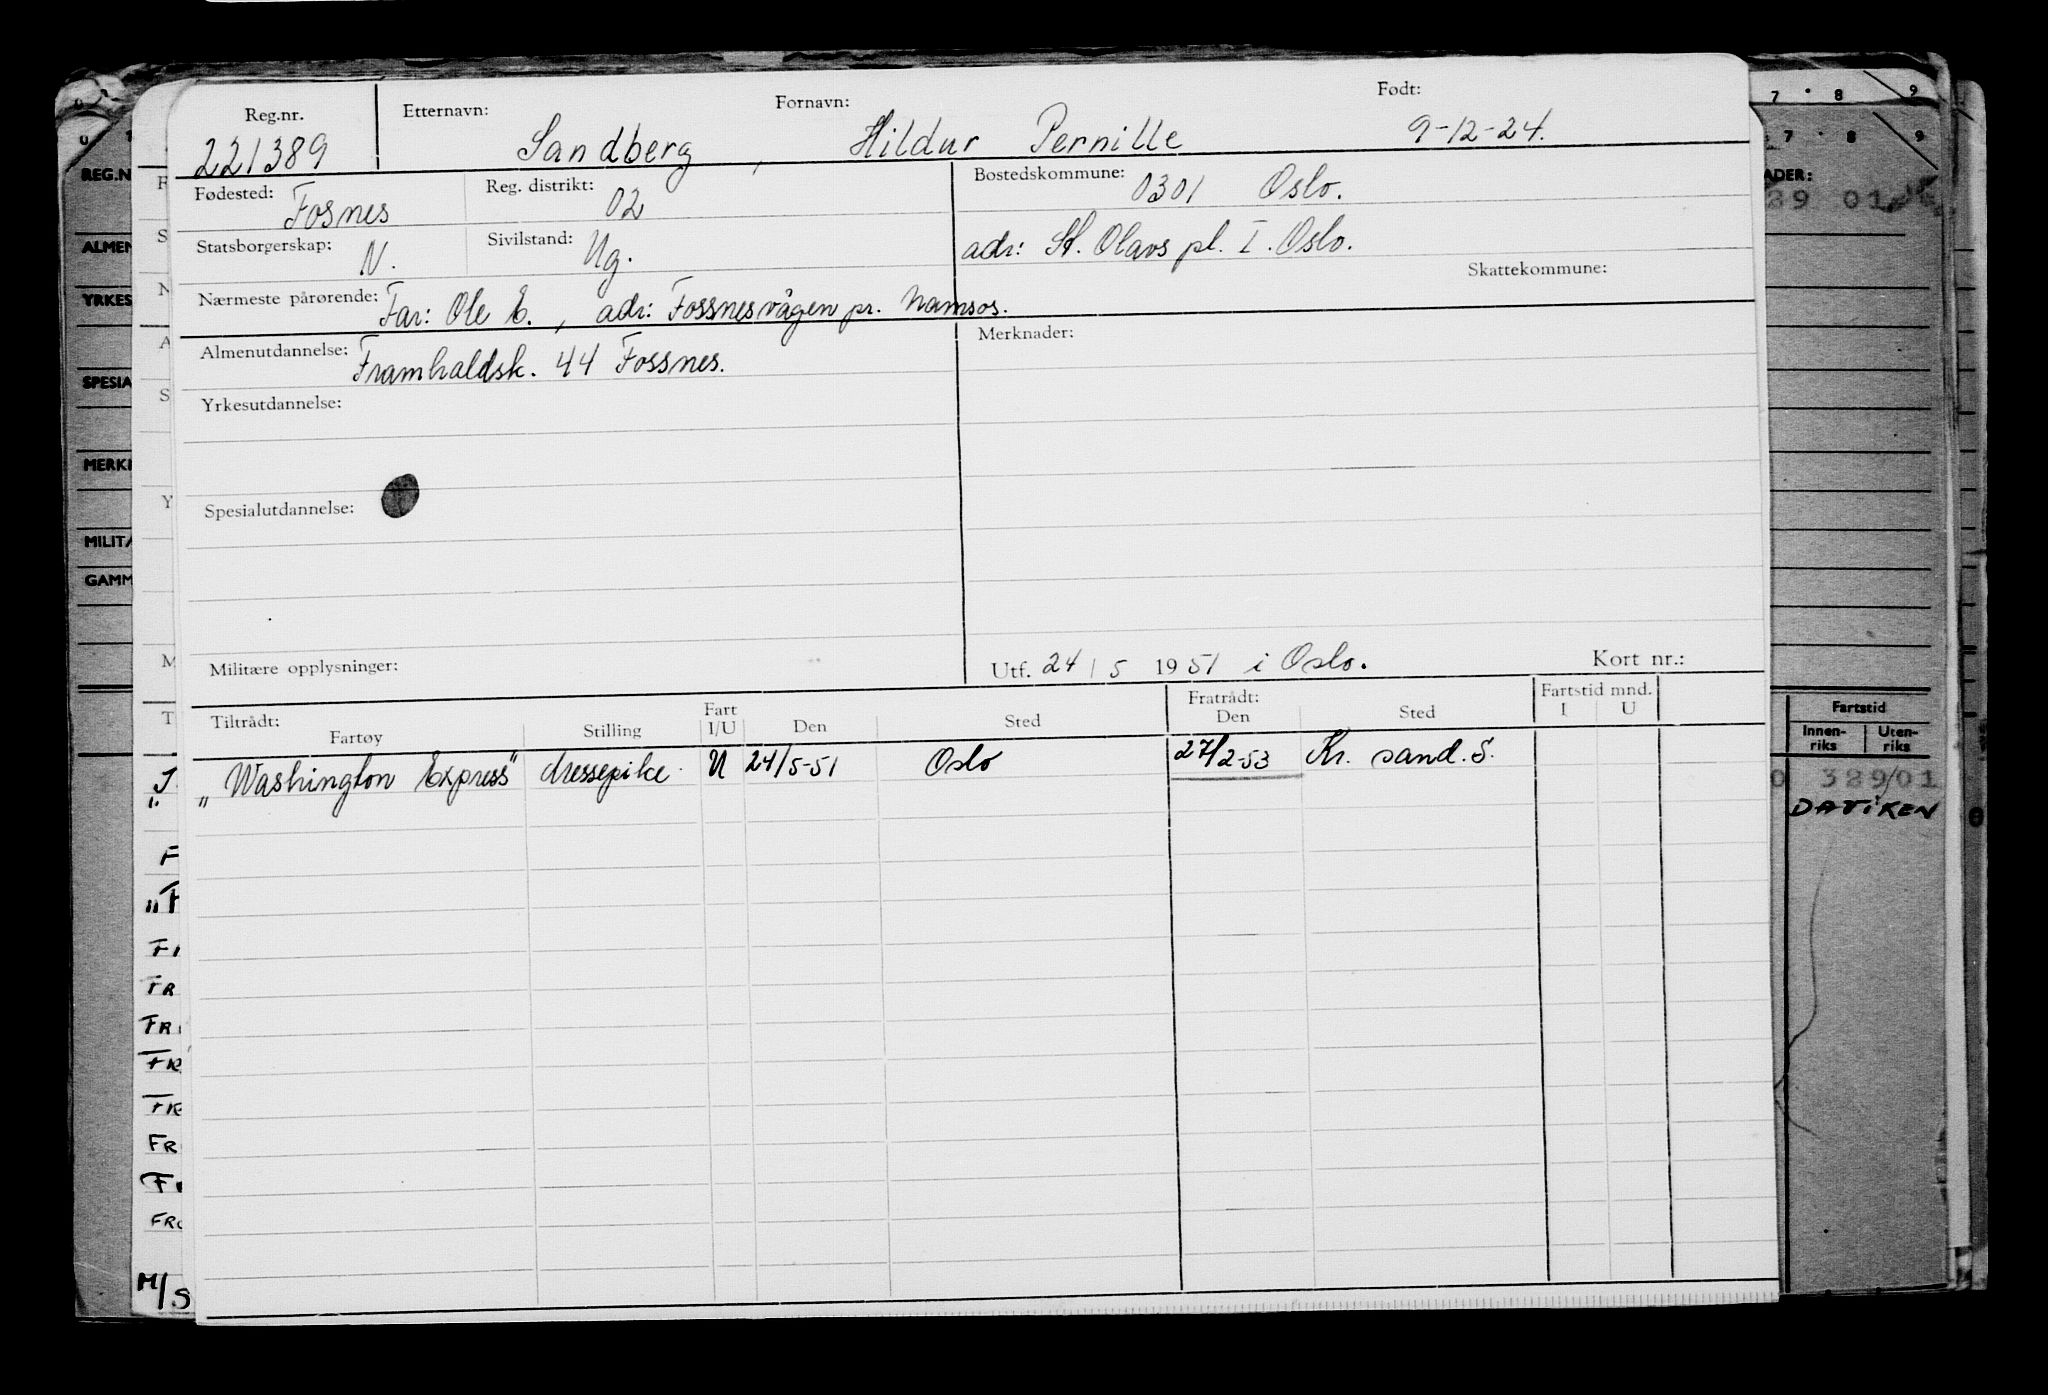 Reg.nr. Etternavn: Fornavn: Født:
221389 Sandberg, Hildur Pernille 9-12-24.
Fødested: Fosnes Reg. distrikt: 02 Bostedskommune: 0301 Oslo.
Statsborgerskap: N. Sivilstand: Ug. adr: St. Olavs pl. I. Oslo.
Skattekommune:
Nærmeste pårørende: Far: Ole E., adr: Fossnesvågen pr. Namsos.
Almenutdannelse: Framhaldsk. 44 Fossnes. Merknader:
Yrkesutdannelse:
Spesialutdannelse:
Militære opplysninger: Utf. 24/5 1951 i Oslo. Kort nr.:
Tiltrådt: Fratrådt: Fartstid mnd.
Fartøy Stilling Fart I/U Den Sted Den Sted I U
"Washington Express" dressepike U 24/5-51 Oslo 27/2-53 Kr. sand. S.
REG.N
ALMEN
YRKES
SPESIA
MERKN
MILITÆ
GAMM
7 8 9
7 8 9
ADER:
39 01
Fartstid
Innen-riks Uten-riks
0 389/01
DAVIKEN
F
S
N
A
S
Y
M
T
FR
FR
FR
FR
FR
FRO
M/S